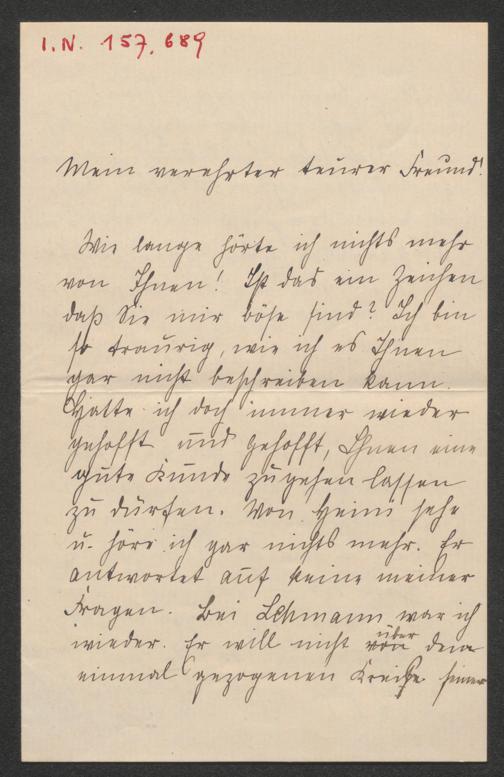 I.N. 157.689
Mein verehrter teurer Freund!
Wie lange hörte ich nichts mehr
von Ihnen! Ist das ein Zeichen
daß Sie mir böse sind? Ich bin
so traurig, wie ich es Ihnen
gar nicht beschreiben kann.
Hatte ich doch immer wieder
gehofft und gehofft, Ihnen eine
gute Kunde zugehen lassen
zu dürfen. Von Heim sehe
u. höre ich gar nichts mehr. Er
antwortet auf keine meiner
Fragen. Bei Lehmann war ich
wieder. Er will nicht von über dem
einmal gezogenen Kreise seiner